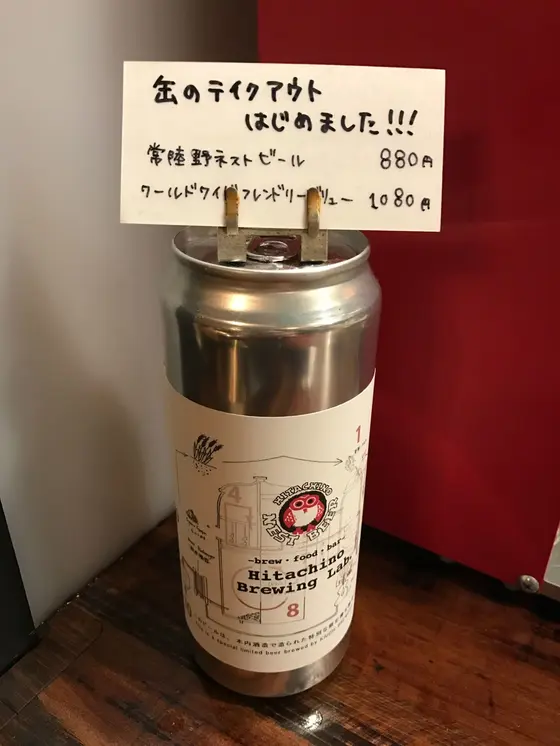 缶のテイクアウト
はじめました!!!
常陸野ネストビール 880円
ワールドワイドフレンドリーブリュー 1080円
1
4
HITACHINO
NEST BEER
-brew・food・bar-
Hitachino
Brewing Lab.
8
木内酒造で造られた特別な限定
This is a special limited beer brewed by